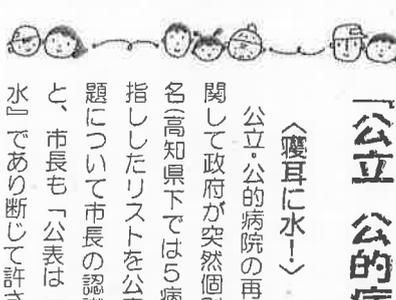 「公立 公的病
〈寝耳に水！〉
公立・公的病院の再
関して政府が突然個別
名(高知県下では5病
指ししたリストを公表
題について市長の認識
と、市長も「公表は
水』であり断じて許さ